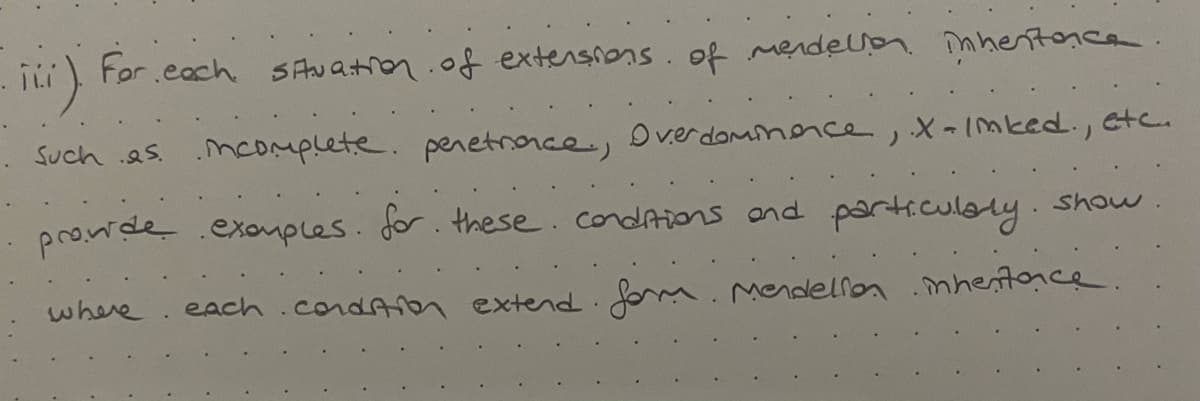 iii) For each situation of extensions of mendelian inheritance
such as incomplete penetrance, Overdominance, X-linked, etc.
provide examples for these conditions and particularly show
where each condition extend form Mendelian inheritance